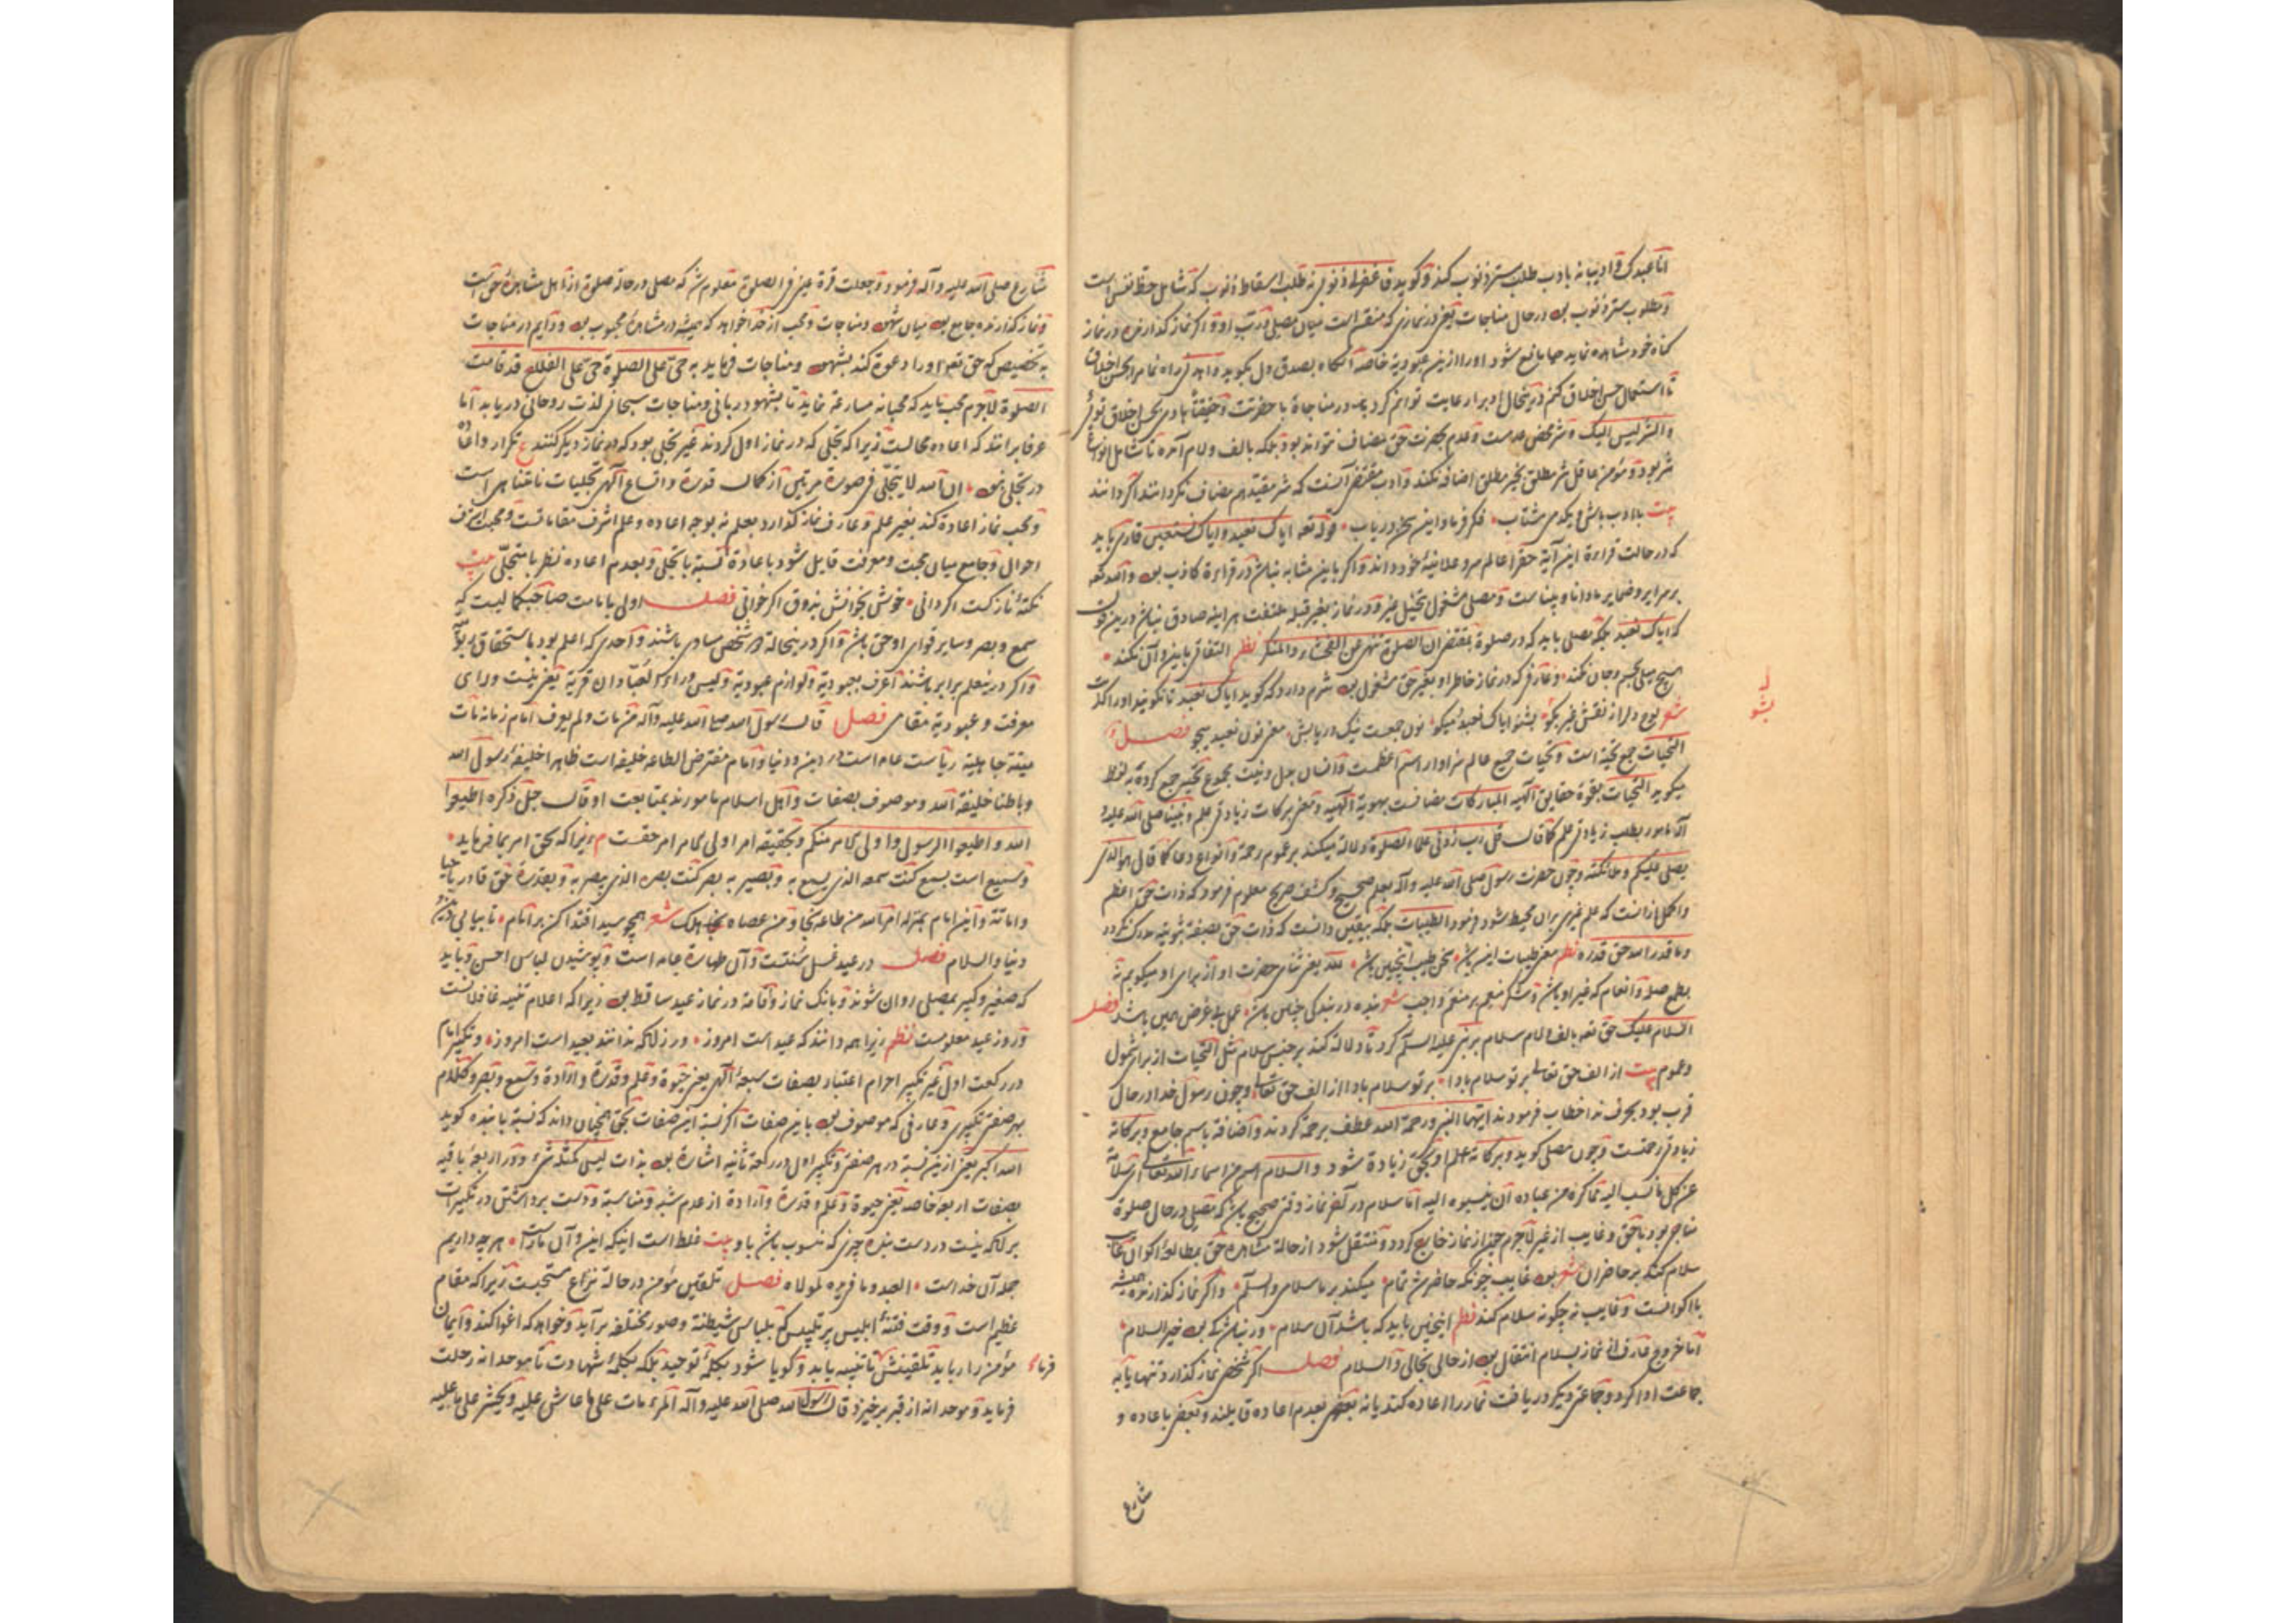 انا عبدک و ادیبانه بادب طلب ستر ذنوب کند و گوید فاغفر لی ذنوبی نه طلب اسقاط ذنوب که شامل حظ نفس است
و مطلوب ستر ذنوب بود در حال مناجات یعنی در نمازی که منقسم است میان مصلی و رب او و اگر نماز گذارنده در نماز
گناه خود مشاهده نماید حیا مانع شود او را ازین عبودیة خاصه آنگاه بصدق دل بگوید و اهدنی راه نما مرا بحسن اخلاق
تا استعمال حسن اخلاق کنم در نیحال ادب را رعایت توانم کرد در مناجاة با حضرتت و حقیقتا هادی بحسن اخلاق توئی
والشر لیس الیک و شر محض عدمست و عدم بحضرت حق مضاف نتواند بود بلکه بالف و لام آمده تا شامل انواع
شر بود و مؤمن عاقل شر مطلق بخیر مطلق اضافه نکند و ادب مقتضی آنست که شر مقید هم مضاف نگردانند اگر دانند
بیت باادب باش و یکدمی مشتاب فکر فرما و این سخن دریاب قوله تعه ایاک نعبد و ایاک نستعین قاری باید
که در حالت قراءة این آیة حق را عالم سر و علانیهٔ خود داند و اگر باین مشابه نباشد در قراءة کاذب بود و الله تعه
بر سرایر و ضمایر ما دانا و بیناست و مصلی مشغول بتخیل غیر و در نماز بغیر قبله ملتفت هر اینه صادق نباشد درین قول
که ایاک نعبد بلکه مصلی باید که در صلوة بمقتضی ان الصلوة تنهی عن الفحشاء والمنکر نظم التفاتی باین و آن نکند
هیچ میلی بجسم و جان نکند و عارفی که در نماز خاطر او بغیر حق مشغول بود شرم دارد که گوید ایاک نعبد تا نگویند او را کذبت
شعر لوح دل را از نقش غیر بشو بشنو ایاک نعبد میگو نون جمعست نیک دریابش معنی نون نعبد میجو فصل
التحیات جمع تحیة است و تحیات جمیع عالم سزاوار اسم اعظمست و انسان مجموع تحیت جمع کرده به لفظ
میگوید التحیات بقوة حقایق الهیه المبارکات مضافست بهویة الهیه و معنی برکات زیادتی علم و نبینا صلی الله علیه و
آله مامور بطلب زیادتی علم کما قال قل رب زدنی علما الصلوة دلالة میکند بر عموم رحمة و انواع دعا کما قال هو الذی
یصلی علیکم و ملائکته و چون حضرت رسول صلی الله علیه و آله بعلم صحیح و کشف صریح معلوم فرمود که ذات حق اعظم
و اکمل از آنست که علم غیری بر آن محیط شود فرمود الطیبات بلکه بیقین دانست که ذات حق بصفة ثبوتیه مدرک نگردد
وما قدروا الله حق قدره نظم معنی طیبات این باشد سخن طیب اینچنین باشد لله یعنی ثنای حضرت او از برای او میگویم نه
بطمع صله و انعام که غیر او باشد و شکر منعم بر منعم واجب شعر بنده در بندگی چنان باشد عمل بی غرض همین باشد فصل
السلام علیک حق تعه بالف و لام سلام بر نبی علیه السلم کرد تا دلالة کند بر جنس سلام مثل التحیات از برای شمول
و عموم بیت از الف حق تعالی بر تو سلام بادا بر تو سلام بادا از الف حق تعالی و چون رسول خدا در حال
قرب بود بحرف ندا خطاب فرمودند ایها النبی و رحمة الله عطف برحمة کردند و اضافة باسم جامع و برکاته
زیادتی رحمتست و چون مصلی گوید و برکاته علم او بحق زیادة شود والسلام اسم من اسماء الله تعالی ای سلامة
عن کل ما نسب الیه مما کره من عباده ان ینسبوه الیه اما سلام در آخر نماز وقتی صحیح باشد که مصلی در حال صلوة
مناجی بود با حق و غایب از غیر لاجرم چون از نماز خارج گردد و منتقل شود از حالة مشاهده حق بمطالعهٔ اکوان غایب
سلام کند بر حاضران شعر بود غایب چونکه حاضر شد تمام میکند بر ما سلامی والسلم و اگر نماز گذارنده همیشه
با اکوانست و غایب نه چگونه سلام کند نظم اینچنین باید که باشد آن سلام ور نباشد کی بود خیر السلام
اما خروج عارف از نماز بسلام انتقال بود از حالی بحالی والسلام فصل اگر شخص نماز گذارد تنها یا به
جماعت ادا کرد و جماعتی دیگر دریافت نماز را اعاده کند یا نه بعضی بعدم اعاده قایلند و بعضی باعاده و
شارع
بشو
شارع صلی الله علیه و آله فرمود و جعلت قرة عینی فی الصلوة معلوم شد که مصلی در حالة صلوة از اهل مشاهدهٔ حق است
و نماز گذارنده جامع بود میان شهود و مناجات و محب از خدا خواهد که همیشه در مشاهدهٔ محبوب بود و دایم در مناجات
به تخصیص که حق تعه او را دعوة کند بشهود و مناجات فرماید به حی علی الصلوة حی علی الفلاح قد قامت
الصلوة لاجرم محب باید که محبانه مسارعة نماید تا بشهود ربانی و مناجات سبحانی لذت روحانی دریابد اما
عرفا برانند که اعاده محالست زیرا که تجلی که در نماز اول کردند غیر تجلی بود که در نماز دیگر کنند ع تکرار و اعاده
در تجلی نبود ان الله لا یتجلی فی صورة مرتین از کمال قدرة و اتساع الهی تجلیات نامتناهی است
و محب نماز اعادة کند بغیر علم و عارف نماز گذارد بعلم نه بوجه اعاده و علم اشرف مقاماتست و محبة اشرف
احوال و جامع میان محبت و معرفت قایل شود باعادة نسبة با تجلی و بعدم اعاده نظر با متجلی بیت
نکتهٔ نازکست اگر دانی خوش بخوانش بذوق اگر خوانی فصل اولی بامامت صاحبکمالیست که
سمع و بصر و سایر قوای او حق باشد و اگر درینحالة دو شخص مساوی باشند و احدی که اعلم بود باستحقاق اولی بود
و اگر در علم برابر باشند اعرف بعبودیة و لوازم عبودیة و لیس وراء العبادان قریة یعنی نیست ورای
معرفت و عبودیة مقامی فصل قال رسول الله صلی الله علیه و آله من مات ولم یعرف امام زمانه مات
میتة جاهلیة ریاست عامه است در دین و دنیا و امام مفترض الطاعه خلیفه است ظاهرا خلیفهٔ رسول الله
و باطنا خلیفة الله و موصوف بصفات و اهل اسلام مامورند بمتابعت او قال جل ذکره اطیعوا
الله و اطیعوا الرسول و اولی الامر منکم و بحقیقه امر اولی الامر امر حقست زیرا که بحق امر میفرماید
و سمیع است بسمع کنت سمعه الذی یسمع به و بصیر به بصر کنت بصره الذی یبصر به و بقدرة حق قادر باحیا
و اماتة و این امام بمنزله امر الله من طاعه نجا و من عصاه هلک شعر همچو سید اقتدا کن بر امام تا بیابی
دنیا والسلام فصل در عید غسل سنتست و آن طهارة عامه است و پوشیدن لباس احسن و باید
که صغیر و کبیر بمصلی روان شوند و بانک نماز و اقامة در نماز عید ساقط بود زیرا که اعلام تنبیه غافلانست
و روز عید معلومست نظم زیرا همه دانند که عید است امروز ور زانکه ندانند بعید است امروز و تکبیر امام
در رکعت اول غیر تکبیر احرام اعتبار بصفات سبعهٔ الهی یعنی حیوة و علم و قدرة و ارادة و سمع و بصر و کلام
بهر صفتی تکبیری و عارفی که موصوف بود باین صفات اگر نسبة این صفات بحق همچنان داند که نسبة با بنده گوید
الله اکبر یعنی ازین نسبة در هر صفتی و تکبیر اول در رکعة ثانیه اشارة بود بذات لیس کمثله شیء و در اربعهٔ باقیه
بصفات اربعه خاصه یعنی حیوة و علم و قدرة و ارادة از عدم شبه و مناسبة و دست برداشتن در تکبیرات
برانکه نیست در دست بنده چیزی که منسوب باشد باو بیت غلط است اینکه این و آن ماراست هر چه داریم
جمله آن خداست العبد و ما فی یده لمولاه فصل تلقین مؤمن در حالة نزاع مستحبست زیرا که مقام
عظیم است و وقت فتنهٔ ابلیس پر تلبیس که بلباس شیطنة و صور مختلفه برآید و خواهد که اغوا کند و ایمان
مؤمن را رباید تلقینش تا تنبیه یابد و گویا شود بکلمهٔ توحید بلکه بکلمهٔ شهادت تا موحدانه رحلت
فرماید و موحدانه از قبر برخیزد قال رسول الله صلی الله علیه و آله المرء مات علی ما عاش علیه و یحشر علی ما علیه